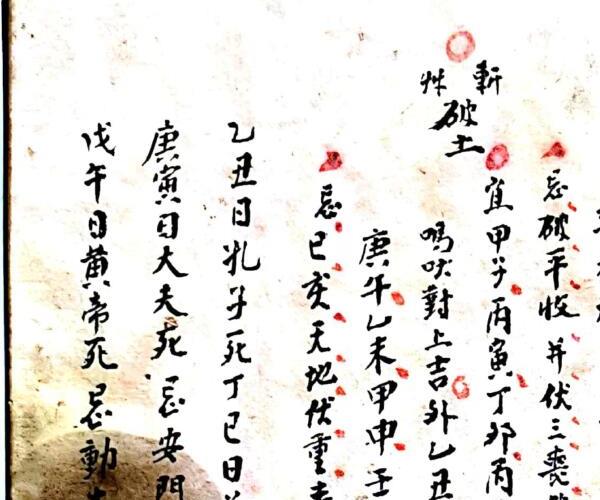 忌破平收并伏三喪
斬艸
破土
宜甲子丙寅丁卯丙
鳴吠對上吉外乙丑
庚午乙未甲申壬
忌巳亥天地伏重
乙丑日孔子死丁巳日
庚寅日大夫死忌安門
戊午日黃帝死忌動土